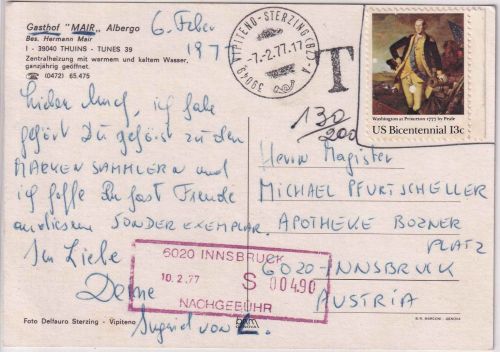 Gasthof "MAIR" Albergo
Bes. Hermann Mair
I - 39040 THUINS - TUNES 39
Zentralheizung mit warmem und kaltem Wasser,
ganzjährig geöffnet.
☎ (0472) 65.475
6. Feber
1977
39049 VIPITENO-STERZING (BZ) - A
-7.-2.77.17
T
130/200
Washington at Princeton 1777 by Peale
US Bicentennial 13c
ich habe
gehört Du gehörst zu den
MARKENSAMMLERN und
ich hoffe Du hast Freude
an diesem SONDEREXEMPLAR.
In Liebe
Deine
von
Herrn Magister
MICHAEL PFURTSCHELLER
APOTHEKE BOZNER
PLATZ
6020-INNSBRUCK
AUSTRIA
6020 INNSBRUCK
10. 2. 77 S 004.90
NACHGEBÜHR
Foto Delfauro Sterzing - Vipiteno